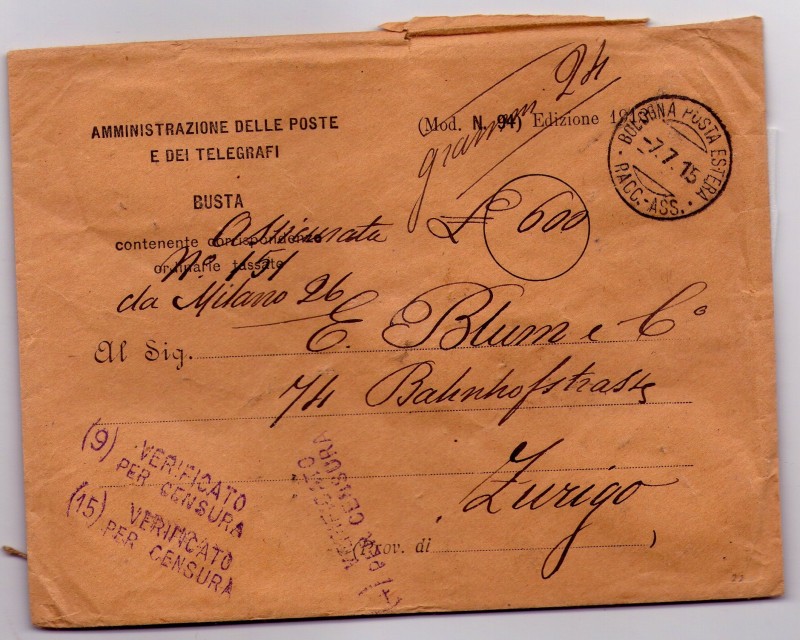 AMMINISTRAZIONE DELLE POSTE
E DEI TELEGRAFI
BUSTA
contenente corrispondenze
ordinarie tassate
Assicurata
N.º 151
da Milano 26
grammi 24
(Mod. N. 94) Edizione 1913
BOLOGNA POSTA ESTERA
-7.7.15
RACC.-ASS.
£ 600
Al Sig. E. Blum e Cº
74 Bahnhofstrasse
Zurigo
(Prov. di )
(9) VERIFICATO
PER CENSURA
(15) VERIFICATO
PER CENSURA
VERIFICATO
PER CENSURA